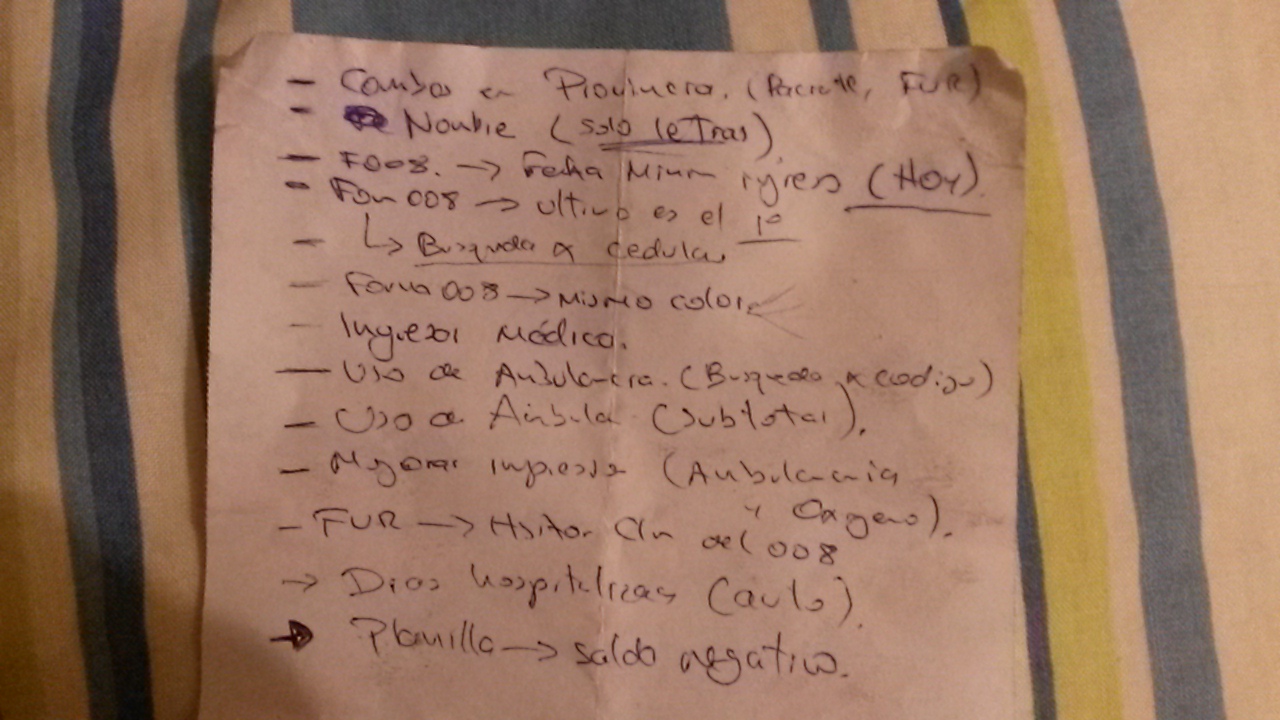 - Combos en Provincia. (Paciente, FUR)
- Nombre (solo letras)
- F008. → Fecha Minim ingreso (HOY).
- Form 008 → ultimo es el 1º
- ↳ Busqueda x cedula
- Forma 008 → Mismo color
- Ingresos Médico.
- Uso de Ambulancia. (Busqueda x codigo)
- Uso de Ambula (Subtotal).
- Mejorar impresión (Ambulancia
y Oxigeno).
- FUR → Hsitor Cln del 008
→ Dias hospitalizas (auto).
→ Planilla → saldo negativo.